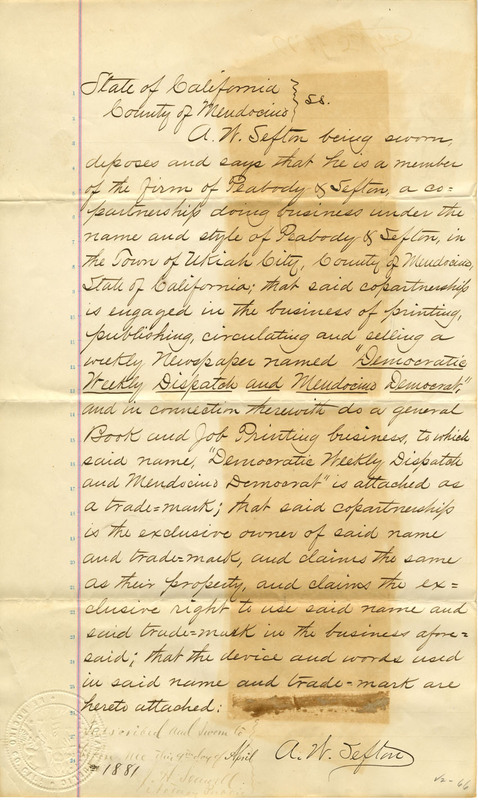 State of California } ss.
County of Mendocino }
A. W. Sefton being sworn,
deposes and says that he is a member
of the Firm of Peabody & Sefton, a co=
partnership doing business under the
name and style of Peabody & Sefton, in
the Town of Ukiah City, County of Mendocino,
State of California; that said copartnership
is engaged in the business of printing,
publishing, circulating and selling a
weekly Newspaper named "Democratic
Weekly Dispatch and Mendocino Democrat,"
and in connection therewith do a general
Book and Job Printing business, to which
said name, "Democratic Weekly Dispatch
and Mendocino Democrat" is attached as
a trade=mark; that said copartnership
is the exclusive owner of said name
and trade=mark, and claims the same
as their property, and claims the ex=
clusive right to use said name and
said trade=mark in the business afore=
said; that the device and words used
in said name and trade=mark are
hereto attached:
Subscribed and Sworn to
me this day of April
1881
A. W. Sefton